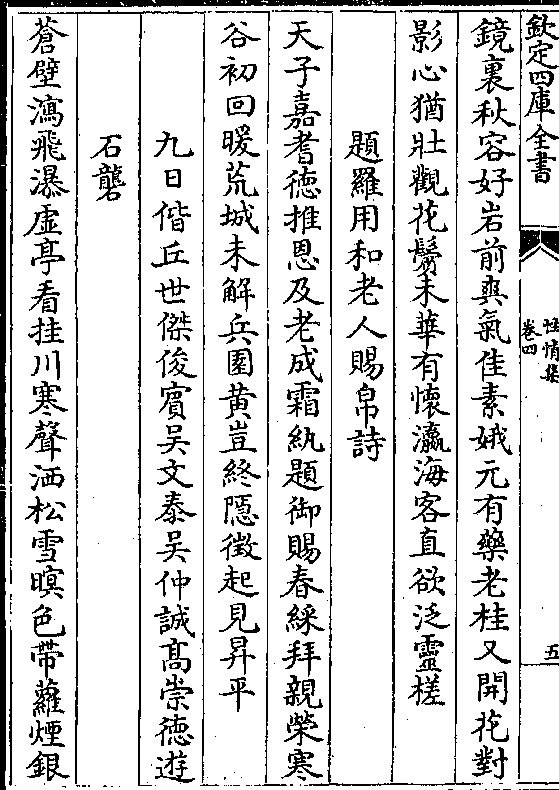 欽定四庫全書
性情集
卷四
五
鏡裏秋容好岩前爽氣佳素娥元有藥老桂又開花對
影心猶壯觀花鬢未華有懷瀛海客直欲泛靈槎
題羅用和老人賜帛詩
天子嘉耆德推恩及老成霜紈題御賜春綵拜親榮寒
谷初回暖荒城未解兵園黃豈終隱徵起見昇平
九日偕丘世傑俊賔吳文泰吳仲誠髙崇徳遊
石礱
蒼壁瀉飛瀑虛亭看挂川寒聲洒松雪暝色帶蘿煙銀